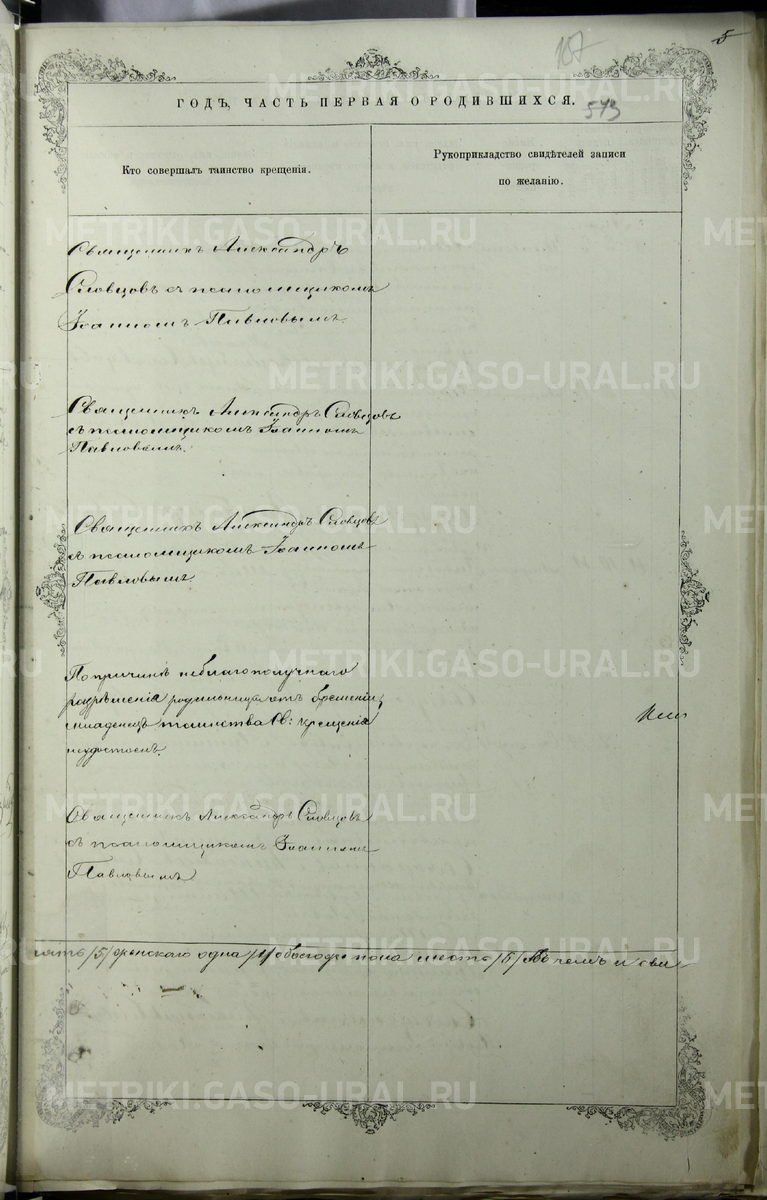 5
187
ГОДЪ, ЧАСТЬ ПЕРВАЯ О РОДИВШИХСЯ.
573
Кто совершалъ таинство крещенія.
Рукоприкладство свидѣтелей записи
по желанію.
Священникъ Александръ
Словцовъ съ псаломщикомъ
Іоанномъ Павловымъ.
Священникъ Александръ Словцовъ
съ псаломщикомъ Іоанномъ
Павловымъ.
Священникъ Александръ Словцовъ
съ псаломщикомъ Іоанномъ
Павловымъ
По причинѣ неблагополучнаго
разрѣшенія родильницы отъ бремени
младенецъ таинства Св: крещенія
неудостоенъ.
Священникъ Александръ Словцовъ
съ псаломщикомъ Іоанномъ
Павловымъ
пять /5/ женского одна /1/ обоего пола шесть /6/ Въ чемъ и сви
METRIKI.GASO-URAL.RU